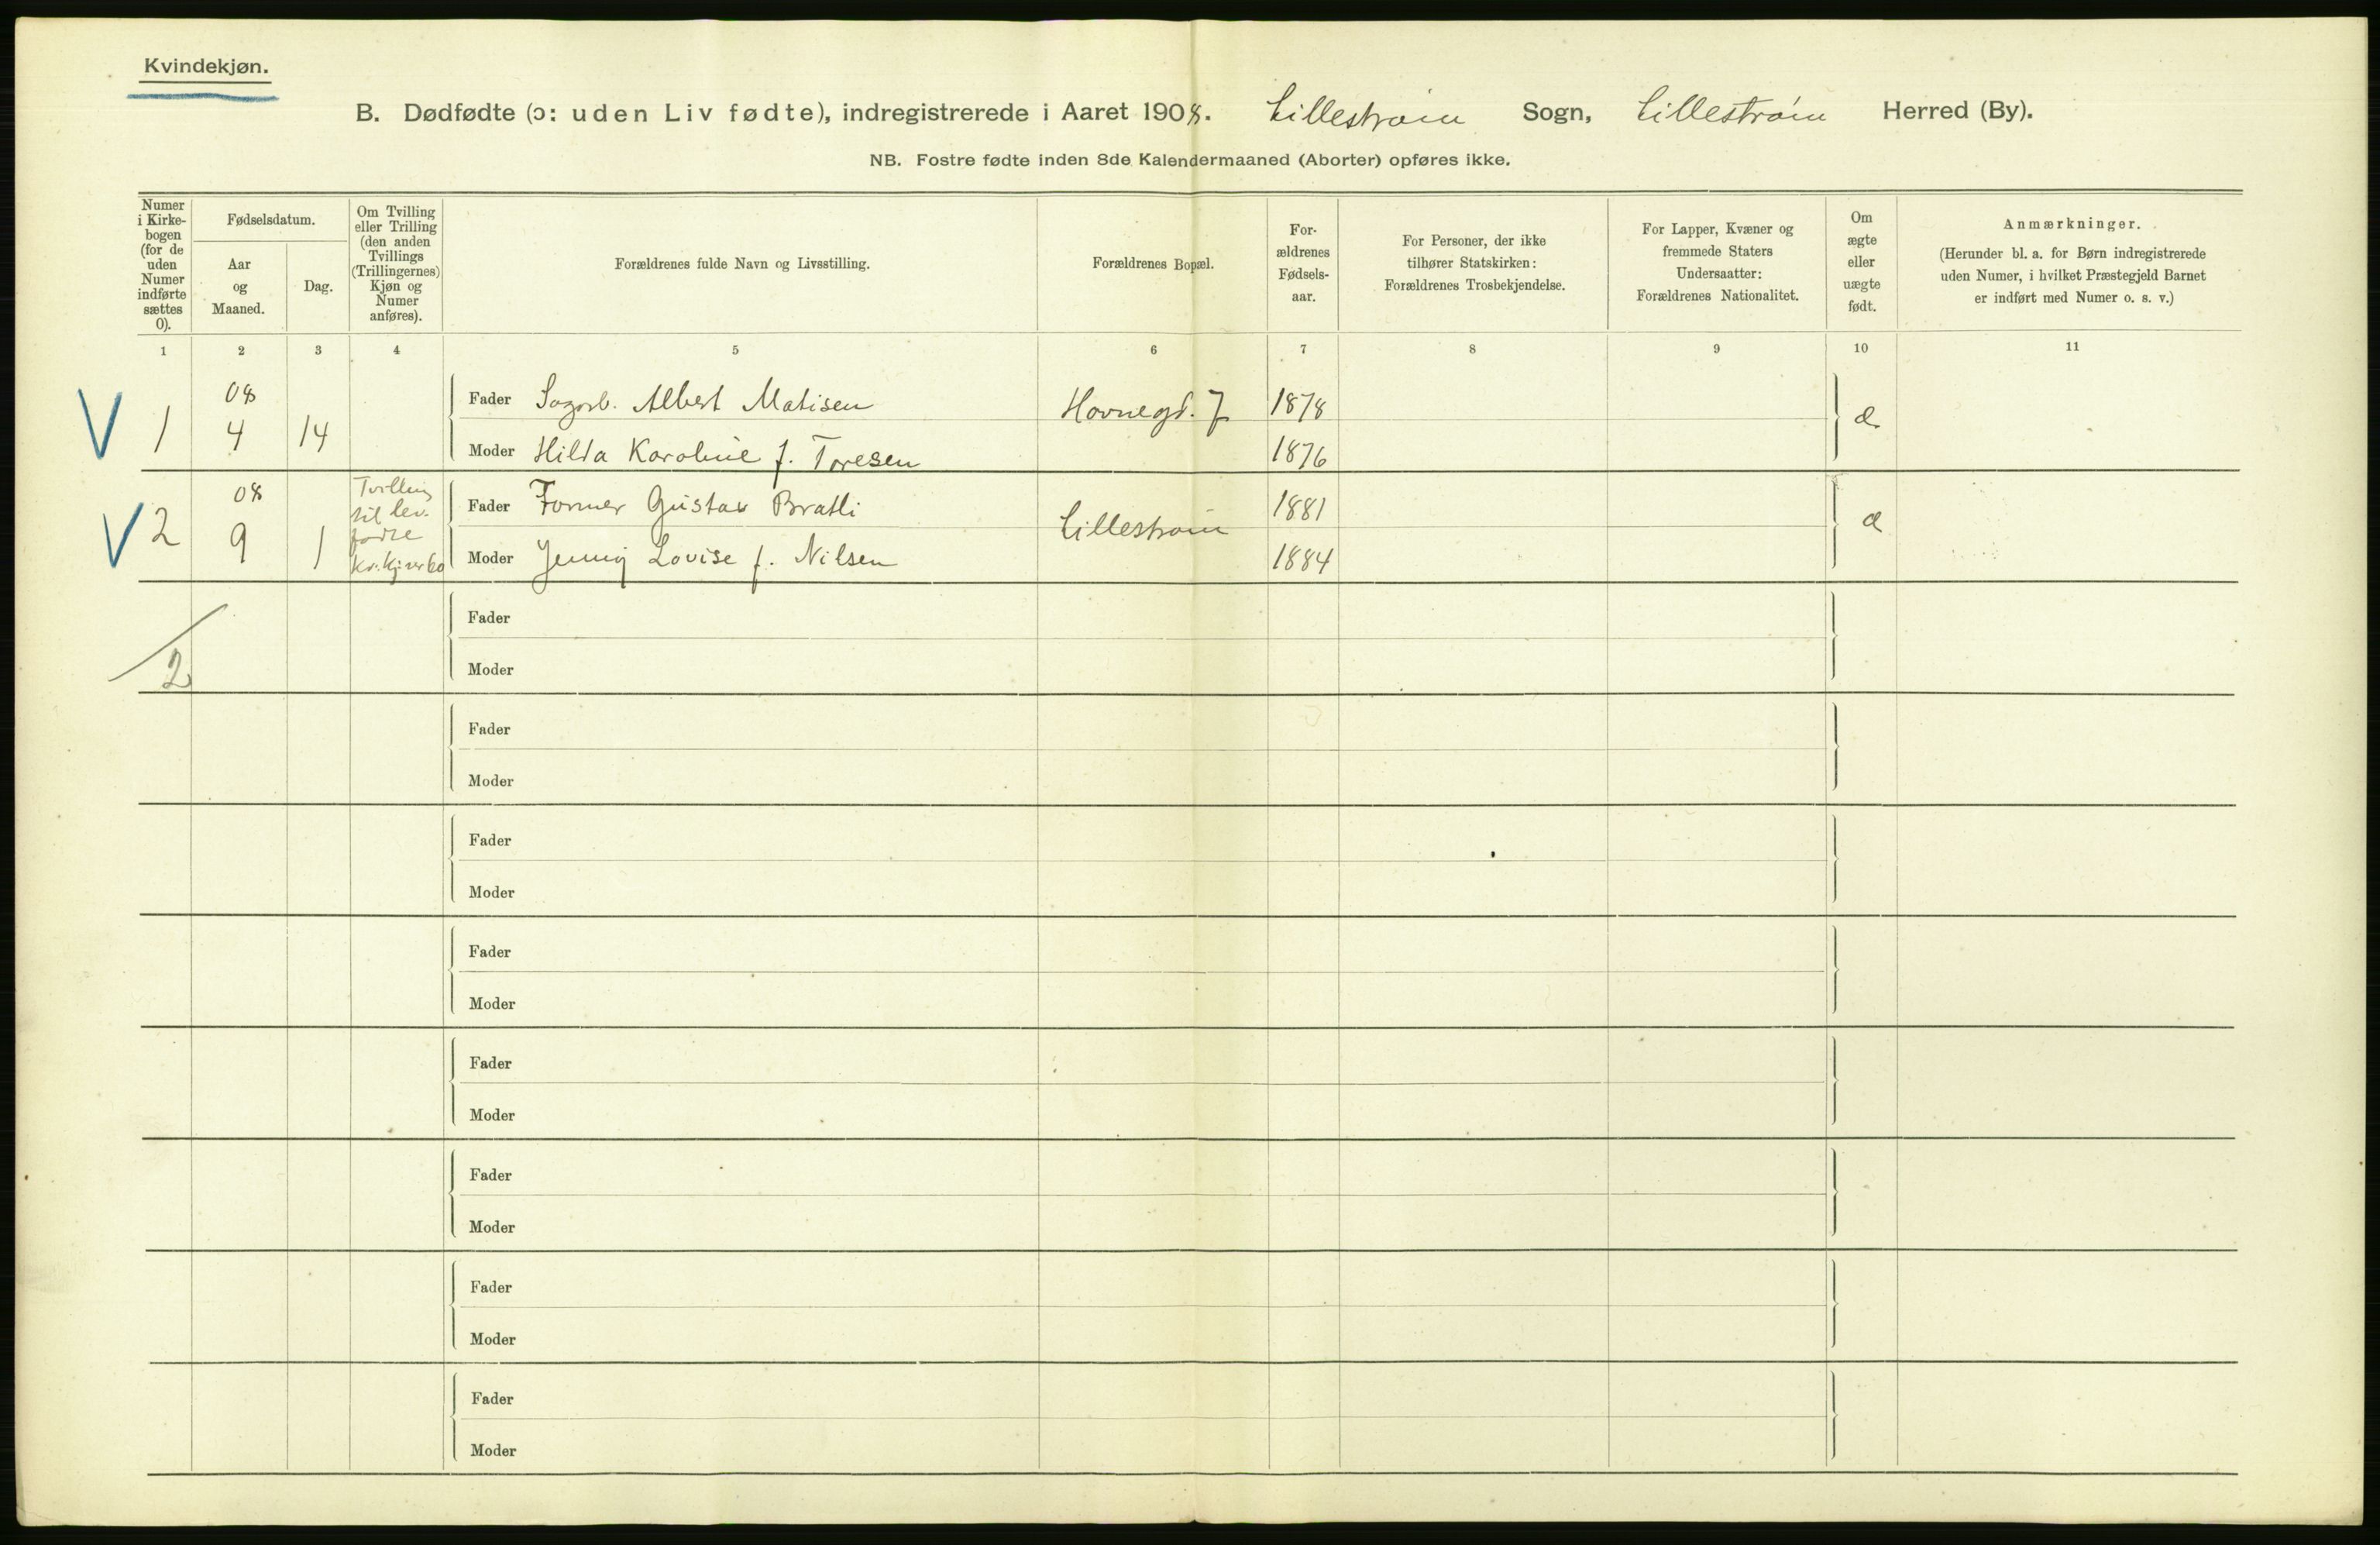 Kvindekjøn.
B. Dødfødte (ɔ: uden Liv fødte), indregistrerede i Aaret 1908. Lillestrøm Sogn, Lillestrøm Herred (By).
NB. Fostre fødte inden 8de Kalendermaaned (Aborter) opføres ikke.
Numer
i Kirke-
bogen
(for de
uden
Numer
indførte
sættes
0).
Fødselsdatum.
Aar
og
Maaned.
Dag.
Om Tvilling
eller Trilling
(den anden
Tvillings
(Trillingernes)
Kjøn og
Numer
anføres).
Forældrenes fulde Navn og Livsstilling.
Forældrenes Bopæl.
For-
ældrenes
Fødsels-
aar.
For Personer, der ikke
tilhører Statskirken:
Forældrenes Trosbekjendelse.
For Lapper, Kvæner og
fremmede Staters
Undersaatter:
Forældrenes Nationalitet.
Om
ægte
eller
uægte
født.
Anmærkninger.
(Herunder bl. a. for Børn indregistrerede
uden Numer, i hvilket Præstegjeld Barnet
er indført med Numer o. s. v.)
1 2 3 4 5 6 7 8 9 10 11
V 1 08 4 14
Fader Sagarb. Albert Matisen 1878
Moder Hilda Karoline f. Toresen 1876
æ
V 2 08 9 1
Tvilling
til lev.
fødte
Fader Former Gustav Bratli Lillestrøm 1881
Moder Jenny Lovise f. Nilsen 1884
æ
2
Fader
Moder
Fader
Moder
Fader
Moder
Fader
Moder
Fader
Moder
Fader
Moder
Fader
Moder
Fader
Moder